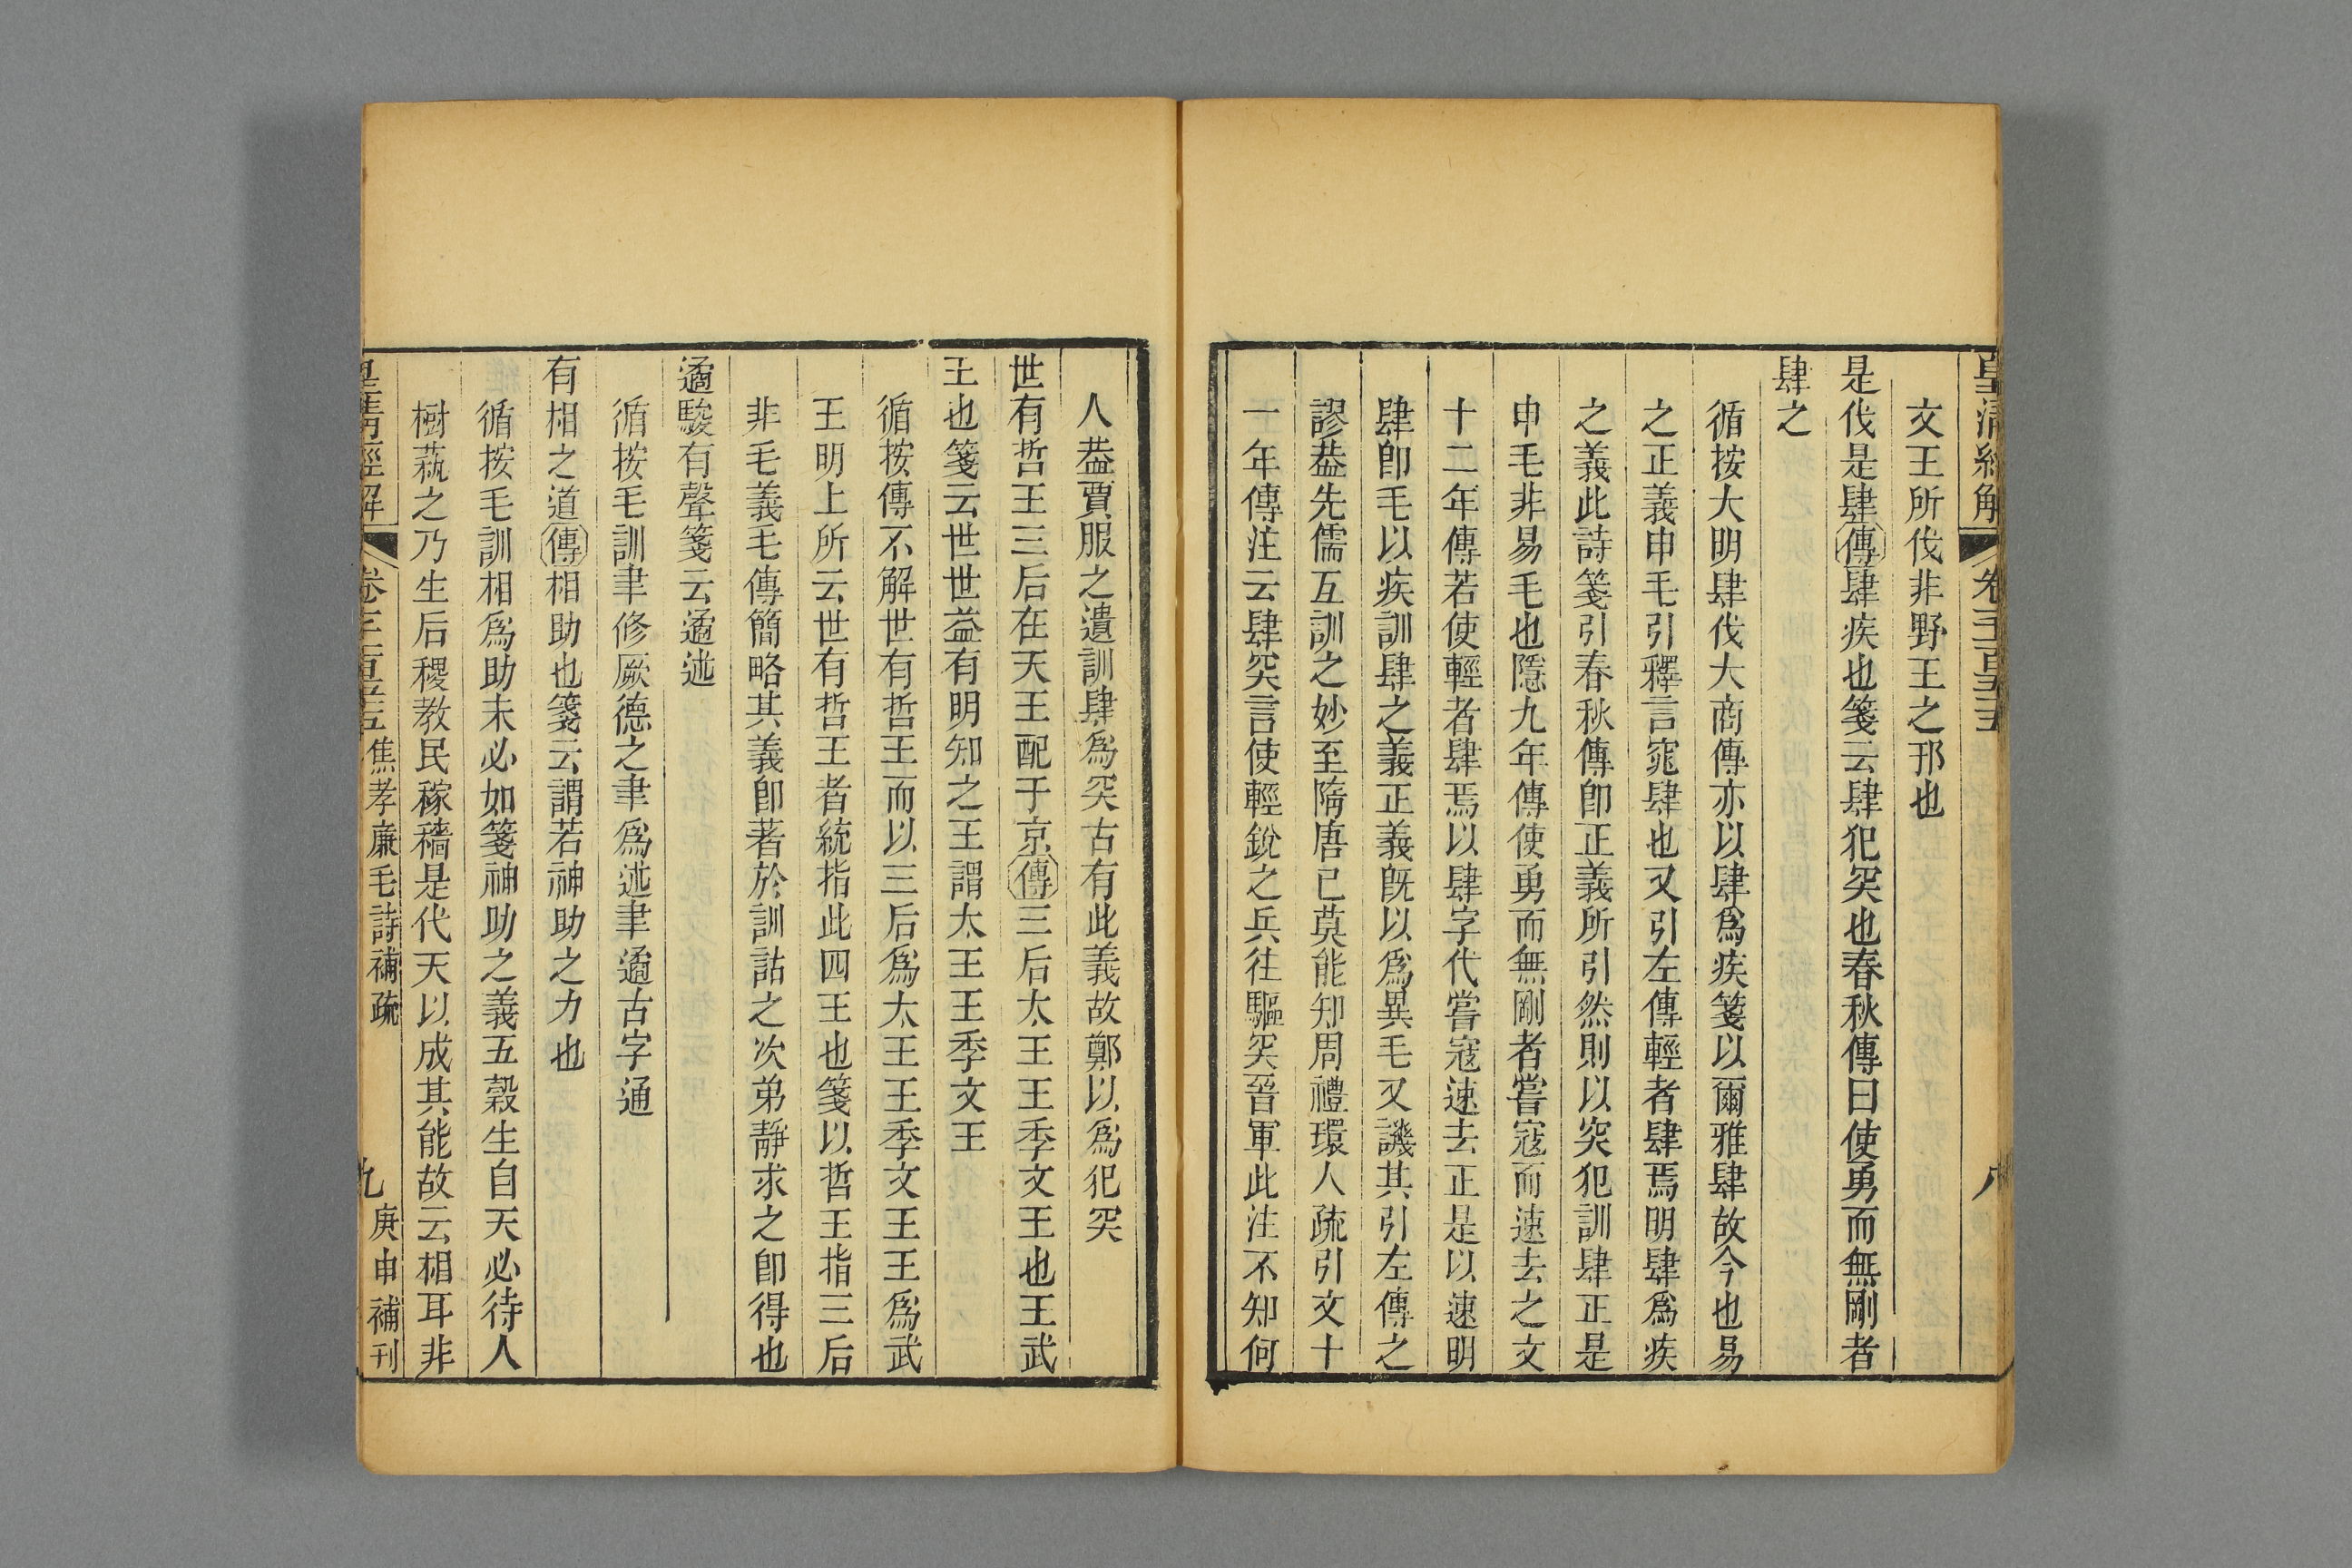 皇清經解 卷千一百五十五 八
文王所伐非野王之邘也
是伐是肆傳肆疾也箋云肆犯突也春秋傳曰使勇而無剛者
肆之
循按大明肆伐大商傳亦以肆爲疾箋以爾雅肆故今也易
之正義申毛引釋言窕肆也又引左傳輕者肆焉明肆爲疾
之義此詩箋引春秋傳卽正義所引然則以突犯訓肆正是
申毛非易毛也隱九年傳使勇而無剛者嘗寇而速去之文
十二年傳若使輕者肆焉以肆字代嘗寇速去正是以速明
肆卽毛以疾訓肆之義正義旣以爲異毛又譏其引左傳之
謬葢先儒互訓之妙至隋唐已莫能知周禮環人疏引文十
一年傳注云肆突言使輕銳之兵往驅突晉軍此注不知何
人葢賈服之遺訓肆爲突古有此義故鄭以爲犯突
世有哲王三后在天王配于京傳三后太王王季文王也王武
王也箋云世世益有明知之王謂太王王季文王
循按傳不解世有哲王而以三后爲太王王季文王王爲武
王明上所云世有哲王者統指此四王也箋以哲王指三后
非毛義毛傳簡略其義卽著於訓詁之次弟靜求之卽得也
遹駿有聲箋云遹述
循按毛訓聿修厥德之聿爲述聿遹古字通
有相之道傳相助也箋云謂若神助之力也
循按毛訓相爲助未必如箋神助之義五穀生自天必待人
樹蓺之乃生后稷教民稼穡是代天以成其能故云相耳非
皇清經解 焦孝廉毛詩補疏 九 庚申補刊